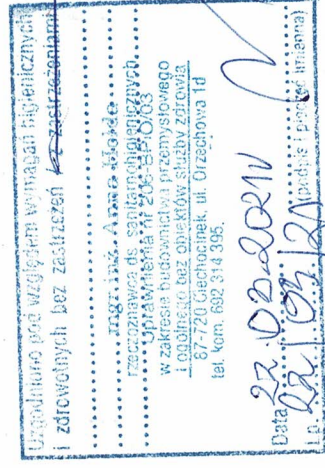 Uzgodniono pod względem wymagań higienicznych
i zdrowotnych bez zastrzeżeń / z zastrzeżeniami
mgr inż. Anna
rzeczoznawca ds. sanitarnohigienicznych
Uprawnienia nr 203-BPiO/03
w zakresie budownictwa przemysłowego
i ogólnego bez obiektów służby zdrowia
87-720 Ciechocinek, ul. Orzechowa 1d
tel. kom. 692 314 395.
Data 22.03.2021r
L.p. 22/03/21 (podpis i pieczęć imienna)